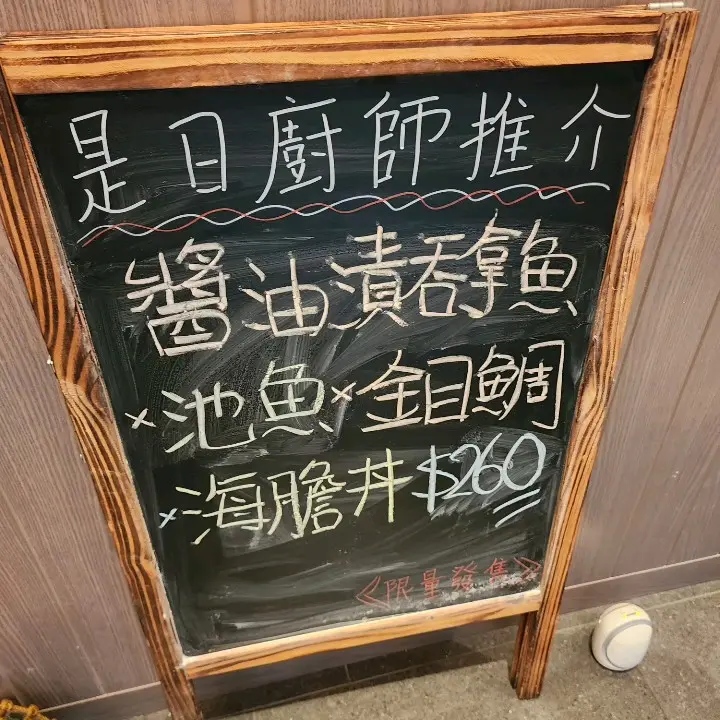 是日廚師推介
醬油漬吞拿魚
×池魚×金目鯛
×海膽丼$260
《限量發售》